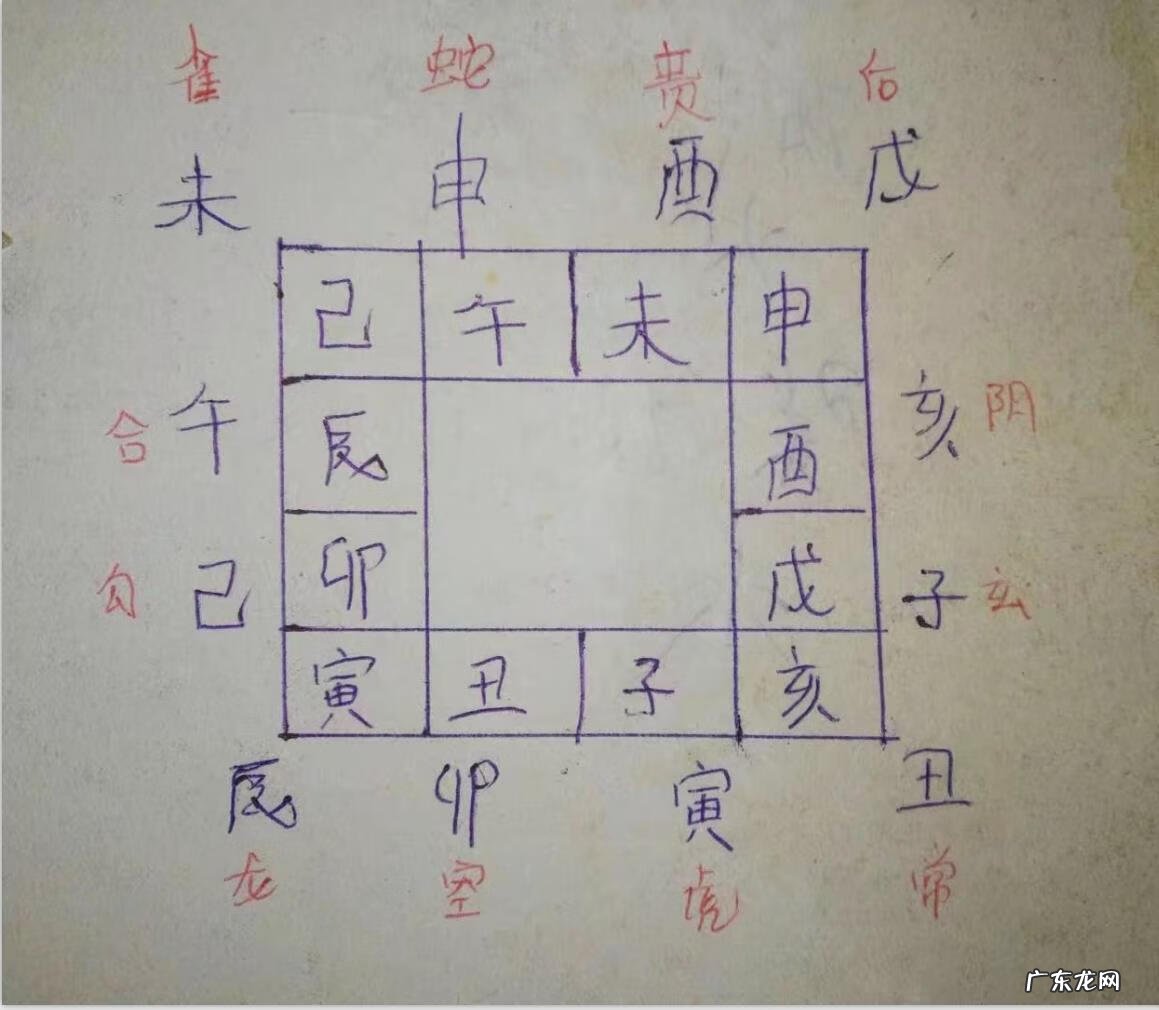 雀 蛇 贵 后
未 申 酉 戌
己 午 未 申
合 午 辰 酉 亥 阴
勾 己 卯 戌 子 玄
寅 丑 子 亥
辰 卯 寅 丑
龙 空 虎 常
广东龙网